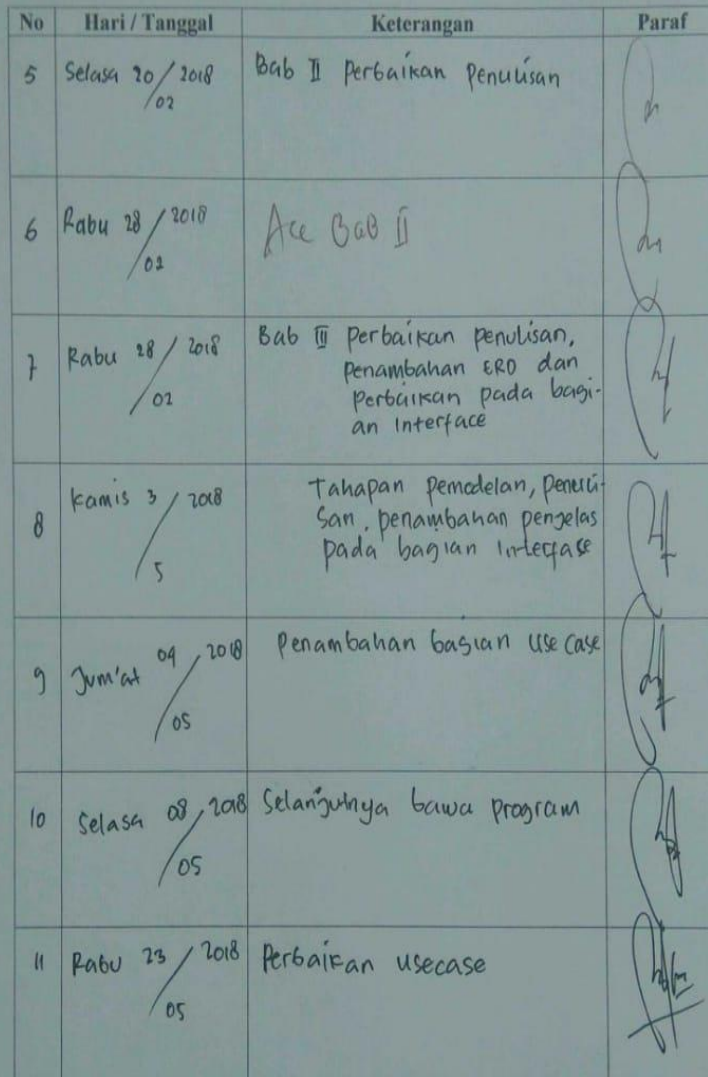 No Hari / Tanggal Keterangan Paraf
5 Selasa 20/02 2018 Bab II perbaikan penulisan
6 Rabu 28/02 2018 Acc Bab II
7 Rabu 28/02 2018 Bab III perbaikan penulisan,
penambahan ERD dan
perbaikan pada bagi-
an interface
8 Kamis 3/5 2018 Tahapan pemodelan, penuli-
san, penambahan penjelas
pada bagian interface
9 Jum'at 04/05 2018 penambahan bagian use case
10 Selasa 08/05 2018 Selanjutnya bawa program
11 Rabu 23/05 2018 Perbaikan usecase